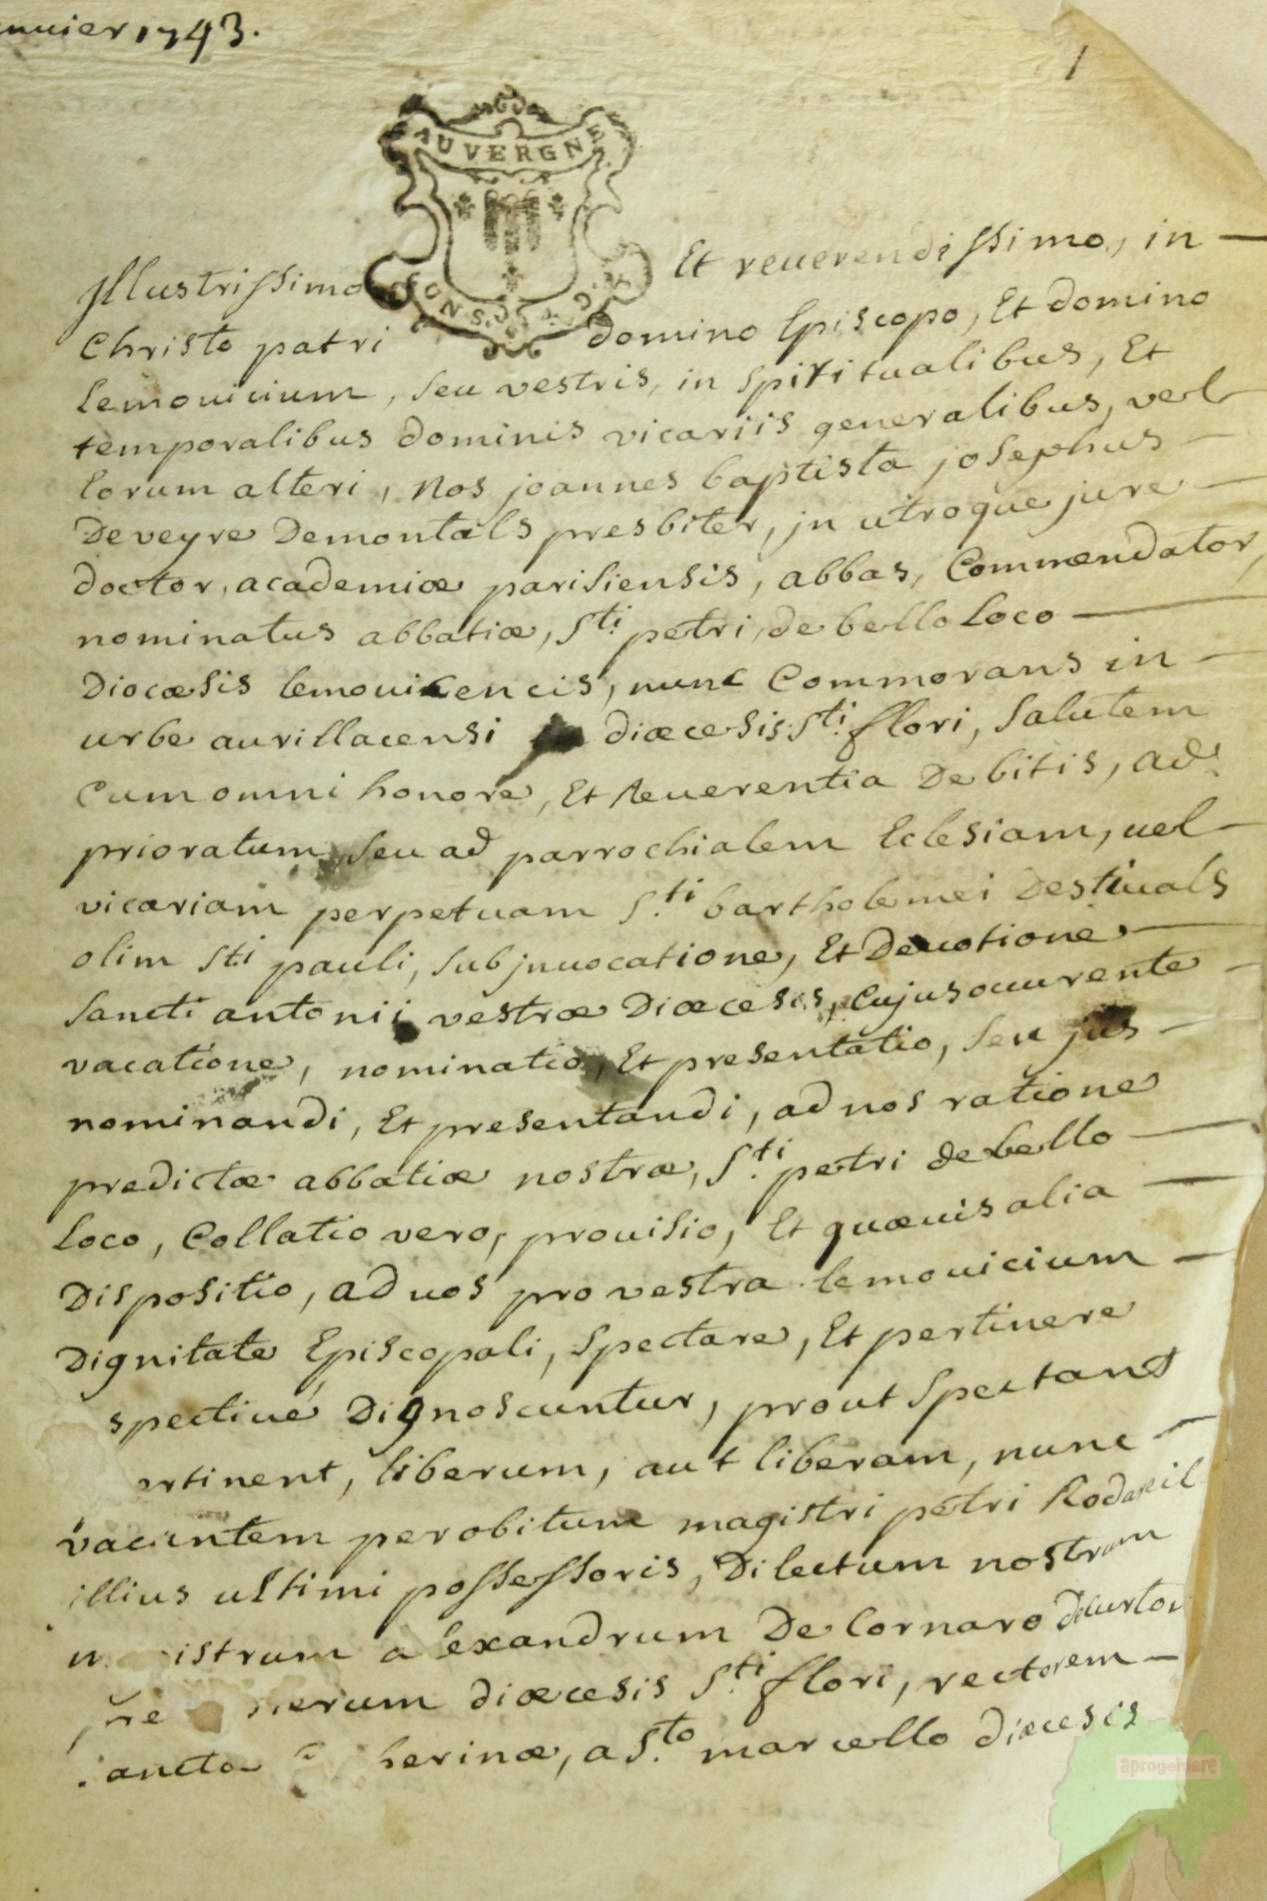 anuier 1743.
1
AUVERGNE
Illustrissimo Et reuerendissimo, in
Christo patri domino Episcopo, Et domino
Lemouicium, seu vestris, in spiritualibus, Et
temporalibus dominis vicariis generalibus, vel
Eorum alteri, Nos joannes baptista josephus
Deveyre Demontals presbiter, jn utroque jure
doctor, academiæ parisiensis, abbas, Commendator,
nominatus abbatiæ, Sti. petri, de bello Loco
Diocæsis Lemouicencis, nunc Commorans in
urbe aurillacensi diæcesis Sti. flori, Salutem
Cum omni honore, Et Reuerentia Debitis, ad
prioratum, seu ad parrochialem Eclesiam, uel
vicariam perpetuam S.ti bartholemei Destiuals
olim Sti pauli, sub jnuocatione, Et Deuotione
Sancti antonii vestræ Diæcesis, Cujus ocurente
vacatione, nominatio, Et presentatio, seu jus
nominandi, Et presentandi, ad nos ratione
predictæ abbatiæ nostræ, S.ti petri de bello
Loco, Collatio vero, prouisio, Et quæuis alia
Dispositio, ad uos pro vestra Lemouicium
Dignitate Episcopali, Spectare, Et pertinere
spectiué Dignoscuntur, prout Spectant
rtinent, liberum, aut liberam, nunc
vacantem per obitum magistri petri Rodareil
illius ultimi possessoris, Dilectum nostrum
istrum alexandrum De Cornaro
diæcesis S.ti flori, rectorem
herinæ, a S.to marcello diæcesis
aprogemere